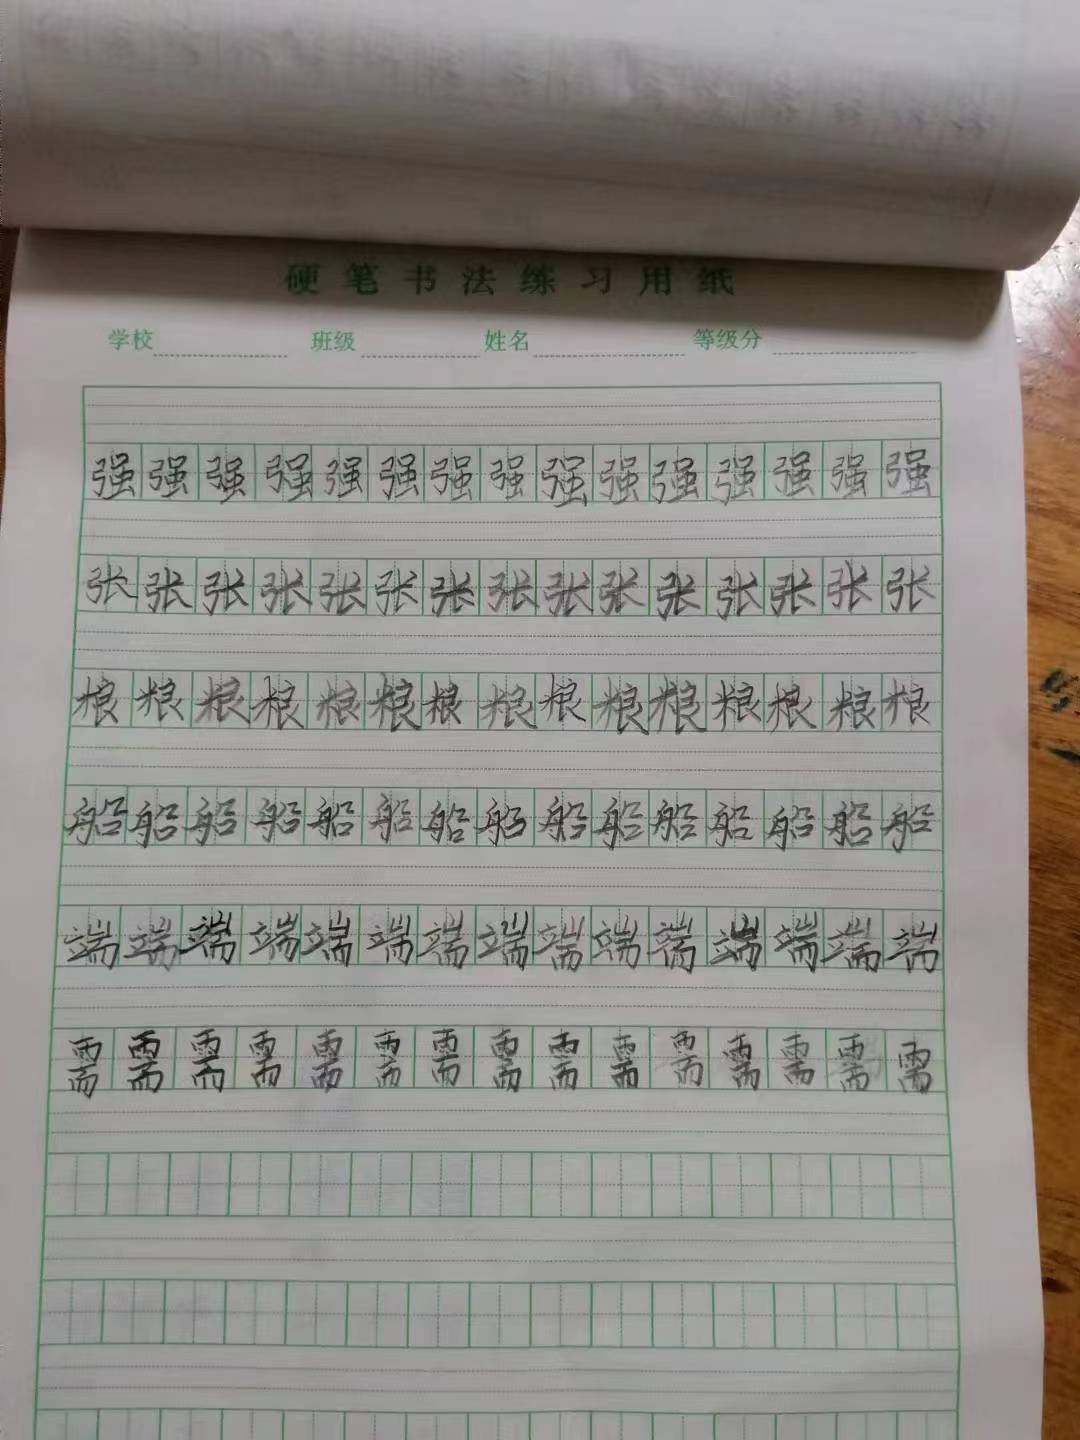 硬笔书法练习用纸
学校 班级 姓名 等级分
强强强强强强强强强强强强强强强
张张张张张张张张张张张张张张张
粮粮粮粮粮粮粮粮粮粮粮粮粮粮粮
船船船船船船船船船船船船船船船
端端端端端端端端端端端端端端端
需需需需需需需需需需需需需需需